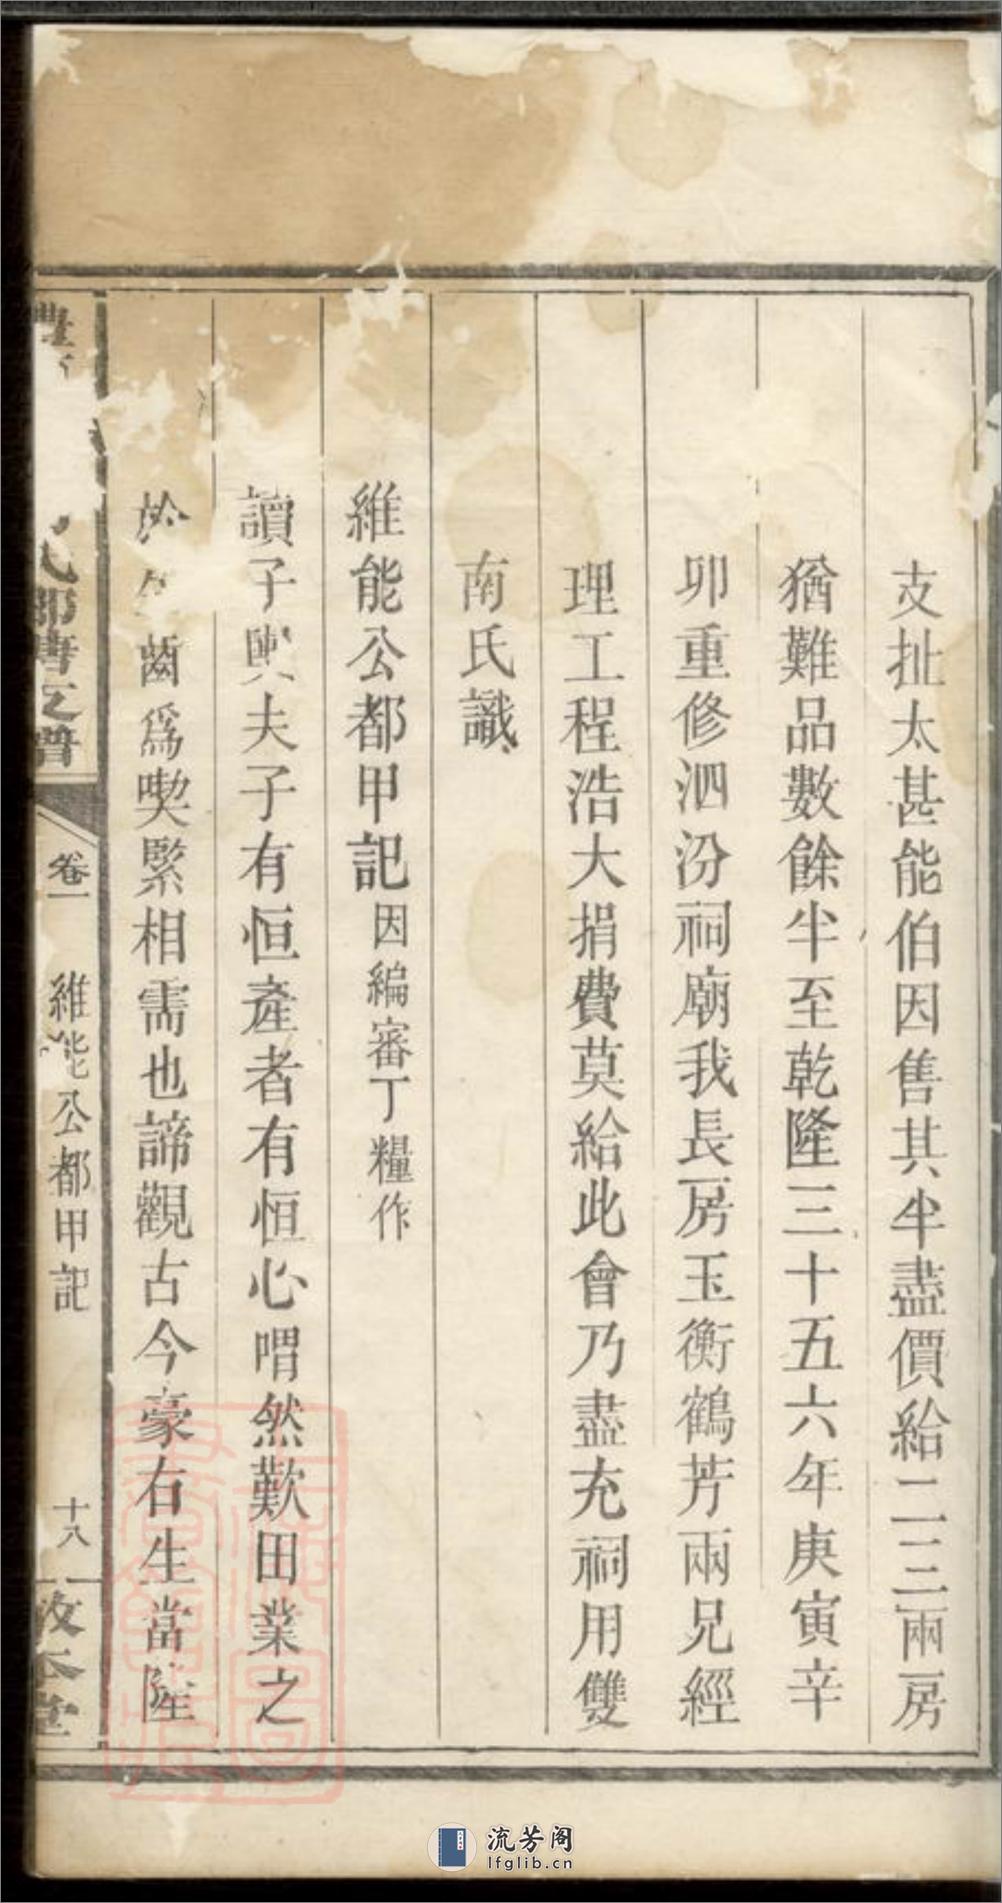 支扯太甚能伯因售其半盡價給二三兩房
猶難品數餘半至乾隆三十五六年庚寅辛
卯重修泗汾祠廟我長房玉衡鶴芳兩兄經
理工程浩大捐費莫給此會乃盡充祠用雙
南氏識
維能公都甲記因編審丁糧作
讀子輿夫子有恒產者有恒心喟然歎田業之
於 齒為喫緊相需也諦觀古今豪右生當陞
氏 譜
卷一
維能公都甲記
十八
堂
流芳阁
lfglib.cn